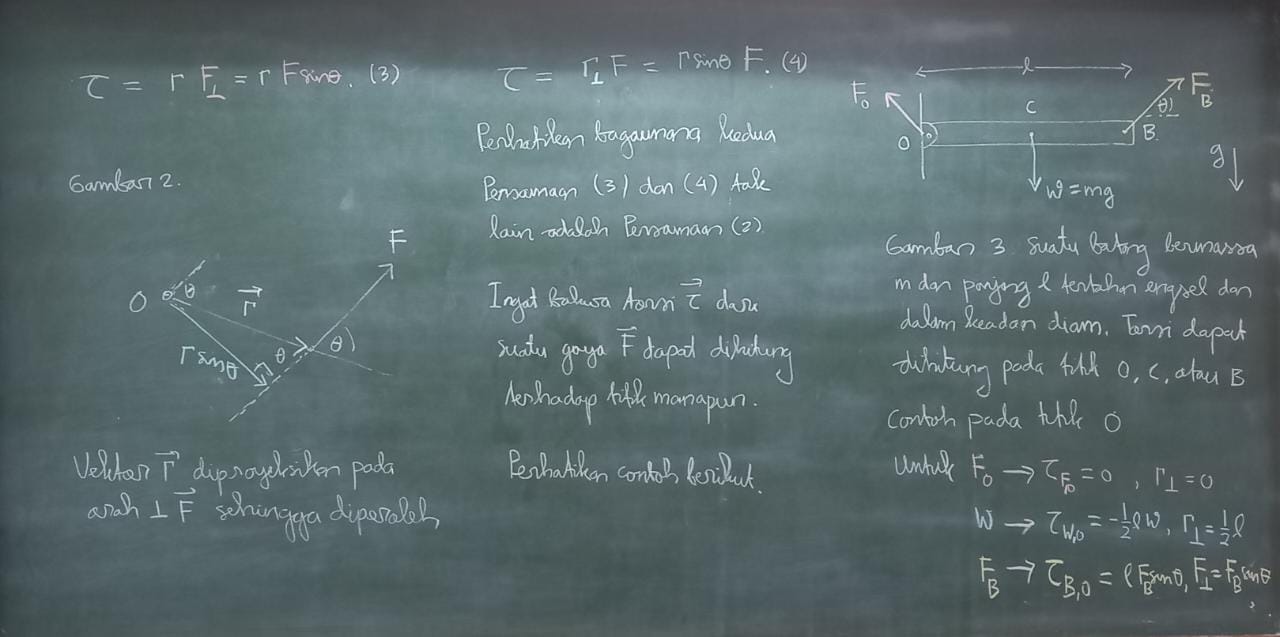 τ = r F⊥ = r F sinθ. (3)
Gambar 2.
F
O
θ
r⃗
θ
θ
r sinθ
Vektor r⃗ diproyeksikan pada
arah ⊥ F⃗ sehingga diperoleh
τ = r⊥ F = r sinθ F. (4)
Perhatikan bagaimana kedua
Persamaan (3) dan (4) tak
lain adalah Persamaan (2)
Ingat bahwa torsi τ⃗ dari
suatu gaya F⃗ dapat dihitung
terhadap titik manapun.
Perhatikan contoh berikut.
l
F₀
F_B
θ
C
O
B
g
W = mg
Gambar 3. Suatu batang bermassa
m dan panjang l tertahan engsel dan
dalam keadan diam. Torsi dapat
dihitung pada titik O, C, atau B
Contoh pada titik O
Untuk F₀ → τ_F₀ = 0 , r⊥ = 0
W → τ_W,O = -½ l W, r⊥ = ½ l
F_B → τ_B,O = l F_B sinθ, F⊥ = F_B sinθ